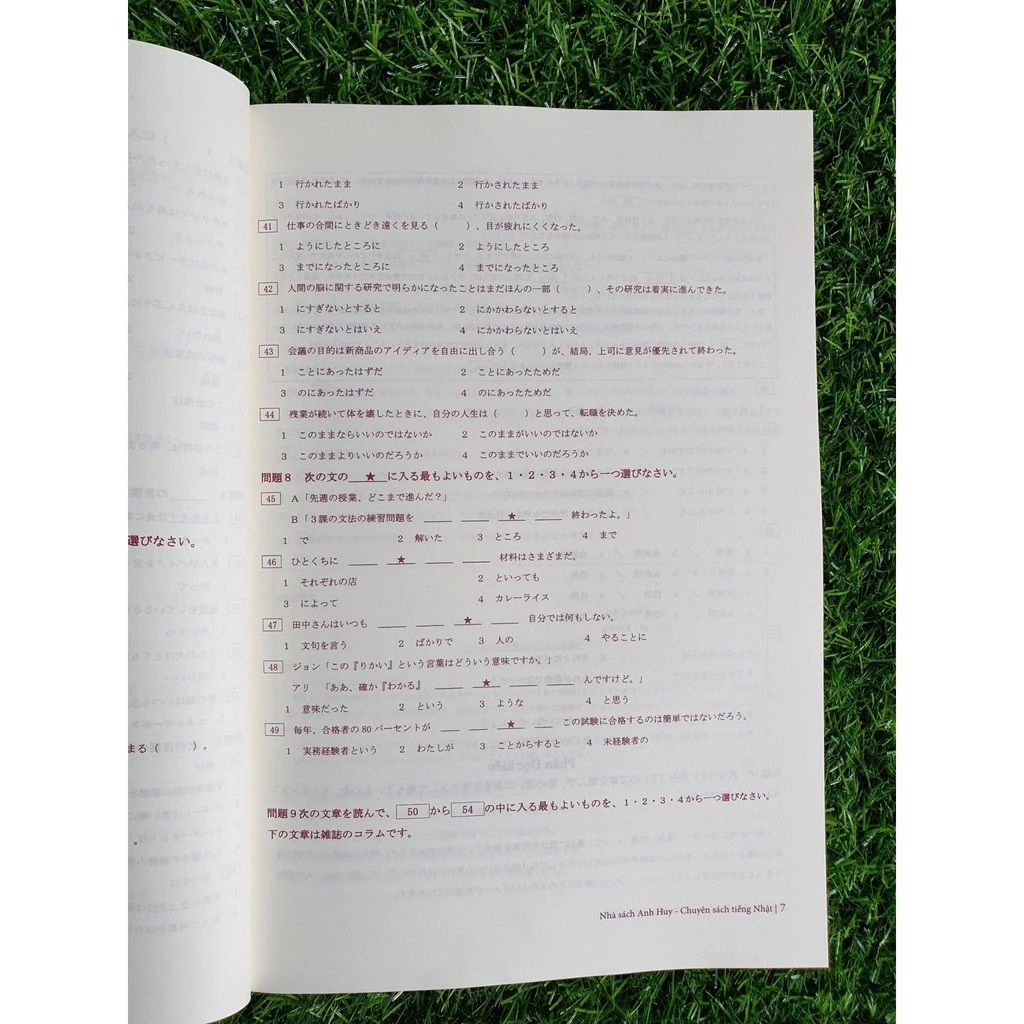 選びなさい。
まる（　　）。
1　行かれたまま　2　行かされたまま
3　行かれたばかり　4　行かされたばかり
41　仕事の合間にときどき遠くを見る（　　）、目が疲れにくくなった。
1　ようにしたところに　2　ようにしたところ
3　までになったところに　4　までになったところ
42　人間の脳に関する研究で明らかになったことはまだほんの一部（　　）、その研究は着実に進んできた。
1　にすぎないとすると　2　にかかわらないとすると
3　にすぎないとはいえ　4　にかかわらないとはいえ
43　会議の目的は新商品のアイディアを自由に出し合う（　　）が、結局、上司に意見が優先されて終わった。
1　ことにあったはずだ　2　ことにあったためだ
3　のにあったはずだ　4　のにあったためだ
44　残業が続いて体を壊したときに、自分の人生は（　　）と思って、転職を決めた。
1　このままならいいのではないか　2　このままがいいのではないか
3　このままよりいいのだろうか　4　このままでいいのだろうか
問題８　次の文の＿★＿に入る最もよいものを、１・２・３・４から一つ選びなさい。
45　A「先週の授業、どこまで進んだ？」
B「３課の文法の練習問題を ＿＿ ＿＿ ＿★＿ ＿＿ 終わったよ。」
1　で　2　解いた　3　ところ　4　まで
46　ひとくちに ＿＿ ＿★＿ ＿＿ ＿＿ 材料はさまざまだ。
1　それぞれの店　2　といっても
3　によって　4　カレーライス
47　田中さんはいつも ＿＿ ＿＿ ＿★＿ ＿＿ 自分では何もしない。
1　文句を言う　2　ばかりで　3　人の　4　やることに
48　ジョン「この『りかい』という言葉はどういう意味ですか。」
アリ　「ああ、確か『わかる』 ＿＿ ＿★＿ ＿＿ ＿＿ んですけど。」
1　意味だった　2　という　3　ような　4　と思う
49　毎年、合格者の 80 パーセントが ＿＿ ＿＿ ＿★＿ ＿＿ この試験に合格するのは簡単ではないだろう。
1　実務経験者という　2　わたしが　3　ことからすると　4　未経験者の
問題９次の文章を読んで、 50 から 54 の中に入る最もよいものを、１・２・３・４から一つ選びなさい。
下の文章は雑誌のコラムです。
Nhà sách Anh Huy - Chuyên sách tiếng Nhật | 7